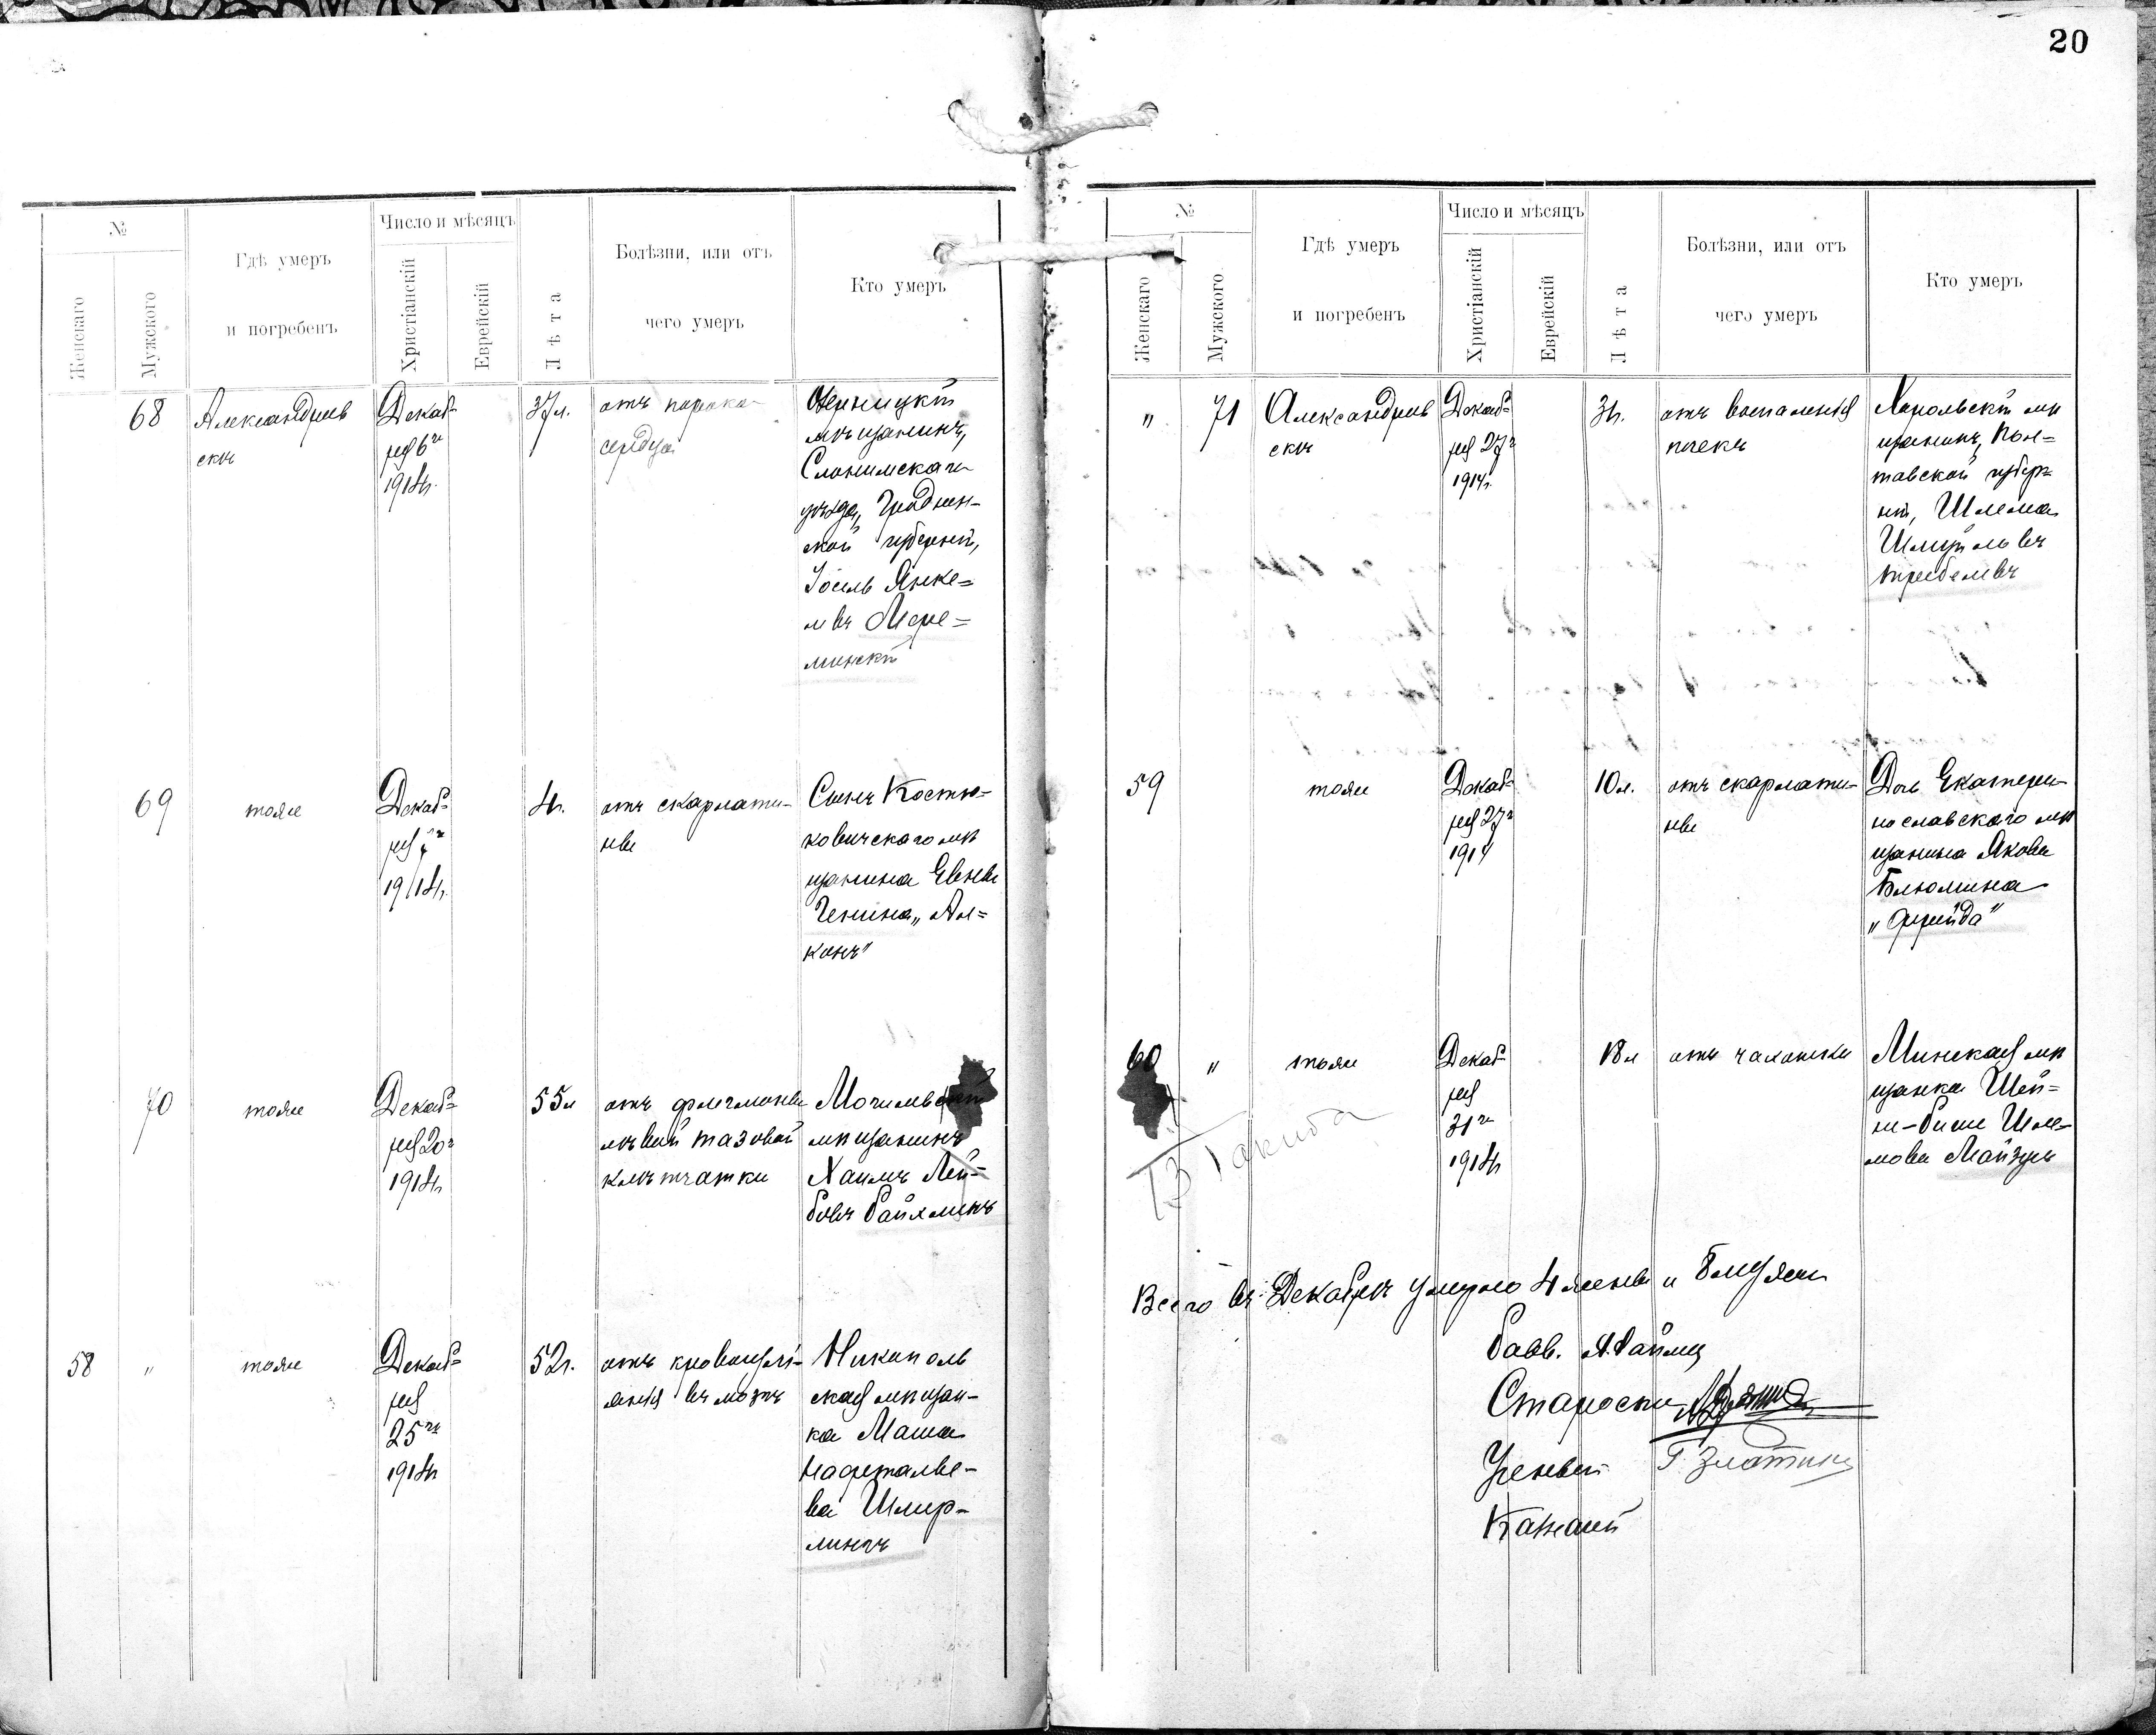 20
№
Женскаго
Мужского
Гдѣ умеръ
и погребенъ
Число и мѣсяцъ
Христіанскій
Еврейскій
Лѣта
Болѣзни, или отъ
чего умеръ
Кто умеръ
68
Александров
скъ
Декаб=
ря 6го
1914г.
37л.
отъ порока
сердца
мѣщанинъ,
Слонимскаго
уѣзда, Гроднен-
ской губерніи,
Іосель Янке=
левъ Мере=
минскій
69
тоже
Декаб=
ря 7го
1914г.
4г.
отъ скарлати-
ны
Сынъ Костю-
ковичскаго мѣ
щанина Евны
Генина „Ал=
конъ"
70
тоже
Декаб=
ря 20г
1914г
55л
отъ флегмоны
лѣвой тазовой
клѣтчатки
Могилевскій
мѣщанинъ
Хаимъ Лей=
бовъ Райхлинъ
58
"
тоже
Декаб=
ря
25го
1914г
52г.
отъ кровоизлі-
янія въ мозгъ
Никополь
ская мѣщан-
ка Маша
Нафтолье-
ва Шмер-
лингъ
№
Женскаго
Мужского
Гдѣ умеръ
и погребенъ
Число и мѣсяцъ
Христіанскій
Еврейскій
Лѣта
Болѣзни, или отъ
чего умеръ
Кто умеръ
"
71
Александров
скъ
Декаб=
ря 27г
1914г.
3г.
отъ воспаленія
почекъ
Хорольскій мѣ
щанинъ, Пол=
тавской губер=
ніи, Шлема
Шмуйлевъ
59
тоже
Декаб=
ря 27г
1914
10л.
отъ скарлати-
ны
Дочь Екатери-
нославскаго мѣ
щанина Якова
Блюмина
„Фрейда"
60
"
тоже
Декаб=
ря
31го
1914г
18л
отъ чахотки
Минская мѣ
щанка Шей=
не-Бише Шле-
мова Майзусъ
Всего въ Декабрѣ умерло 4 женщ и 8 мужск
Равв.
Староста
Ученый Г Златкинъ
Казначей